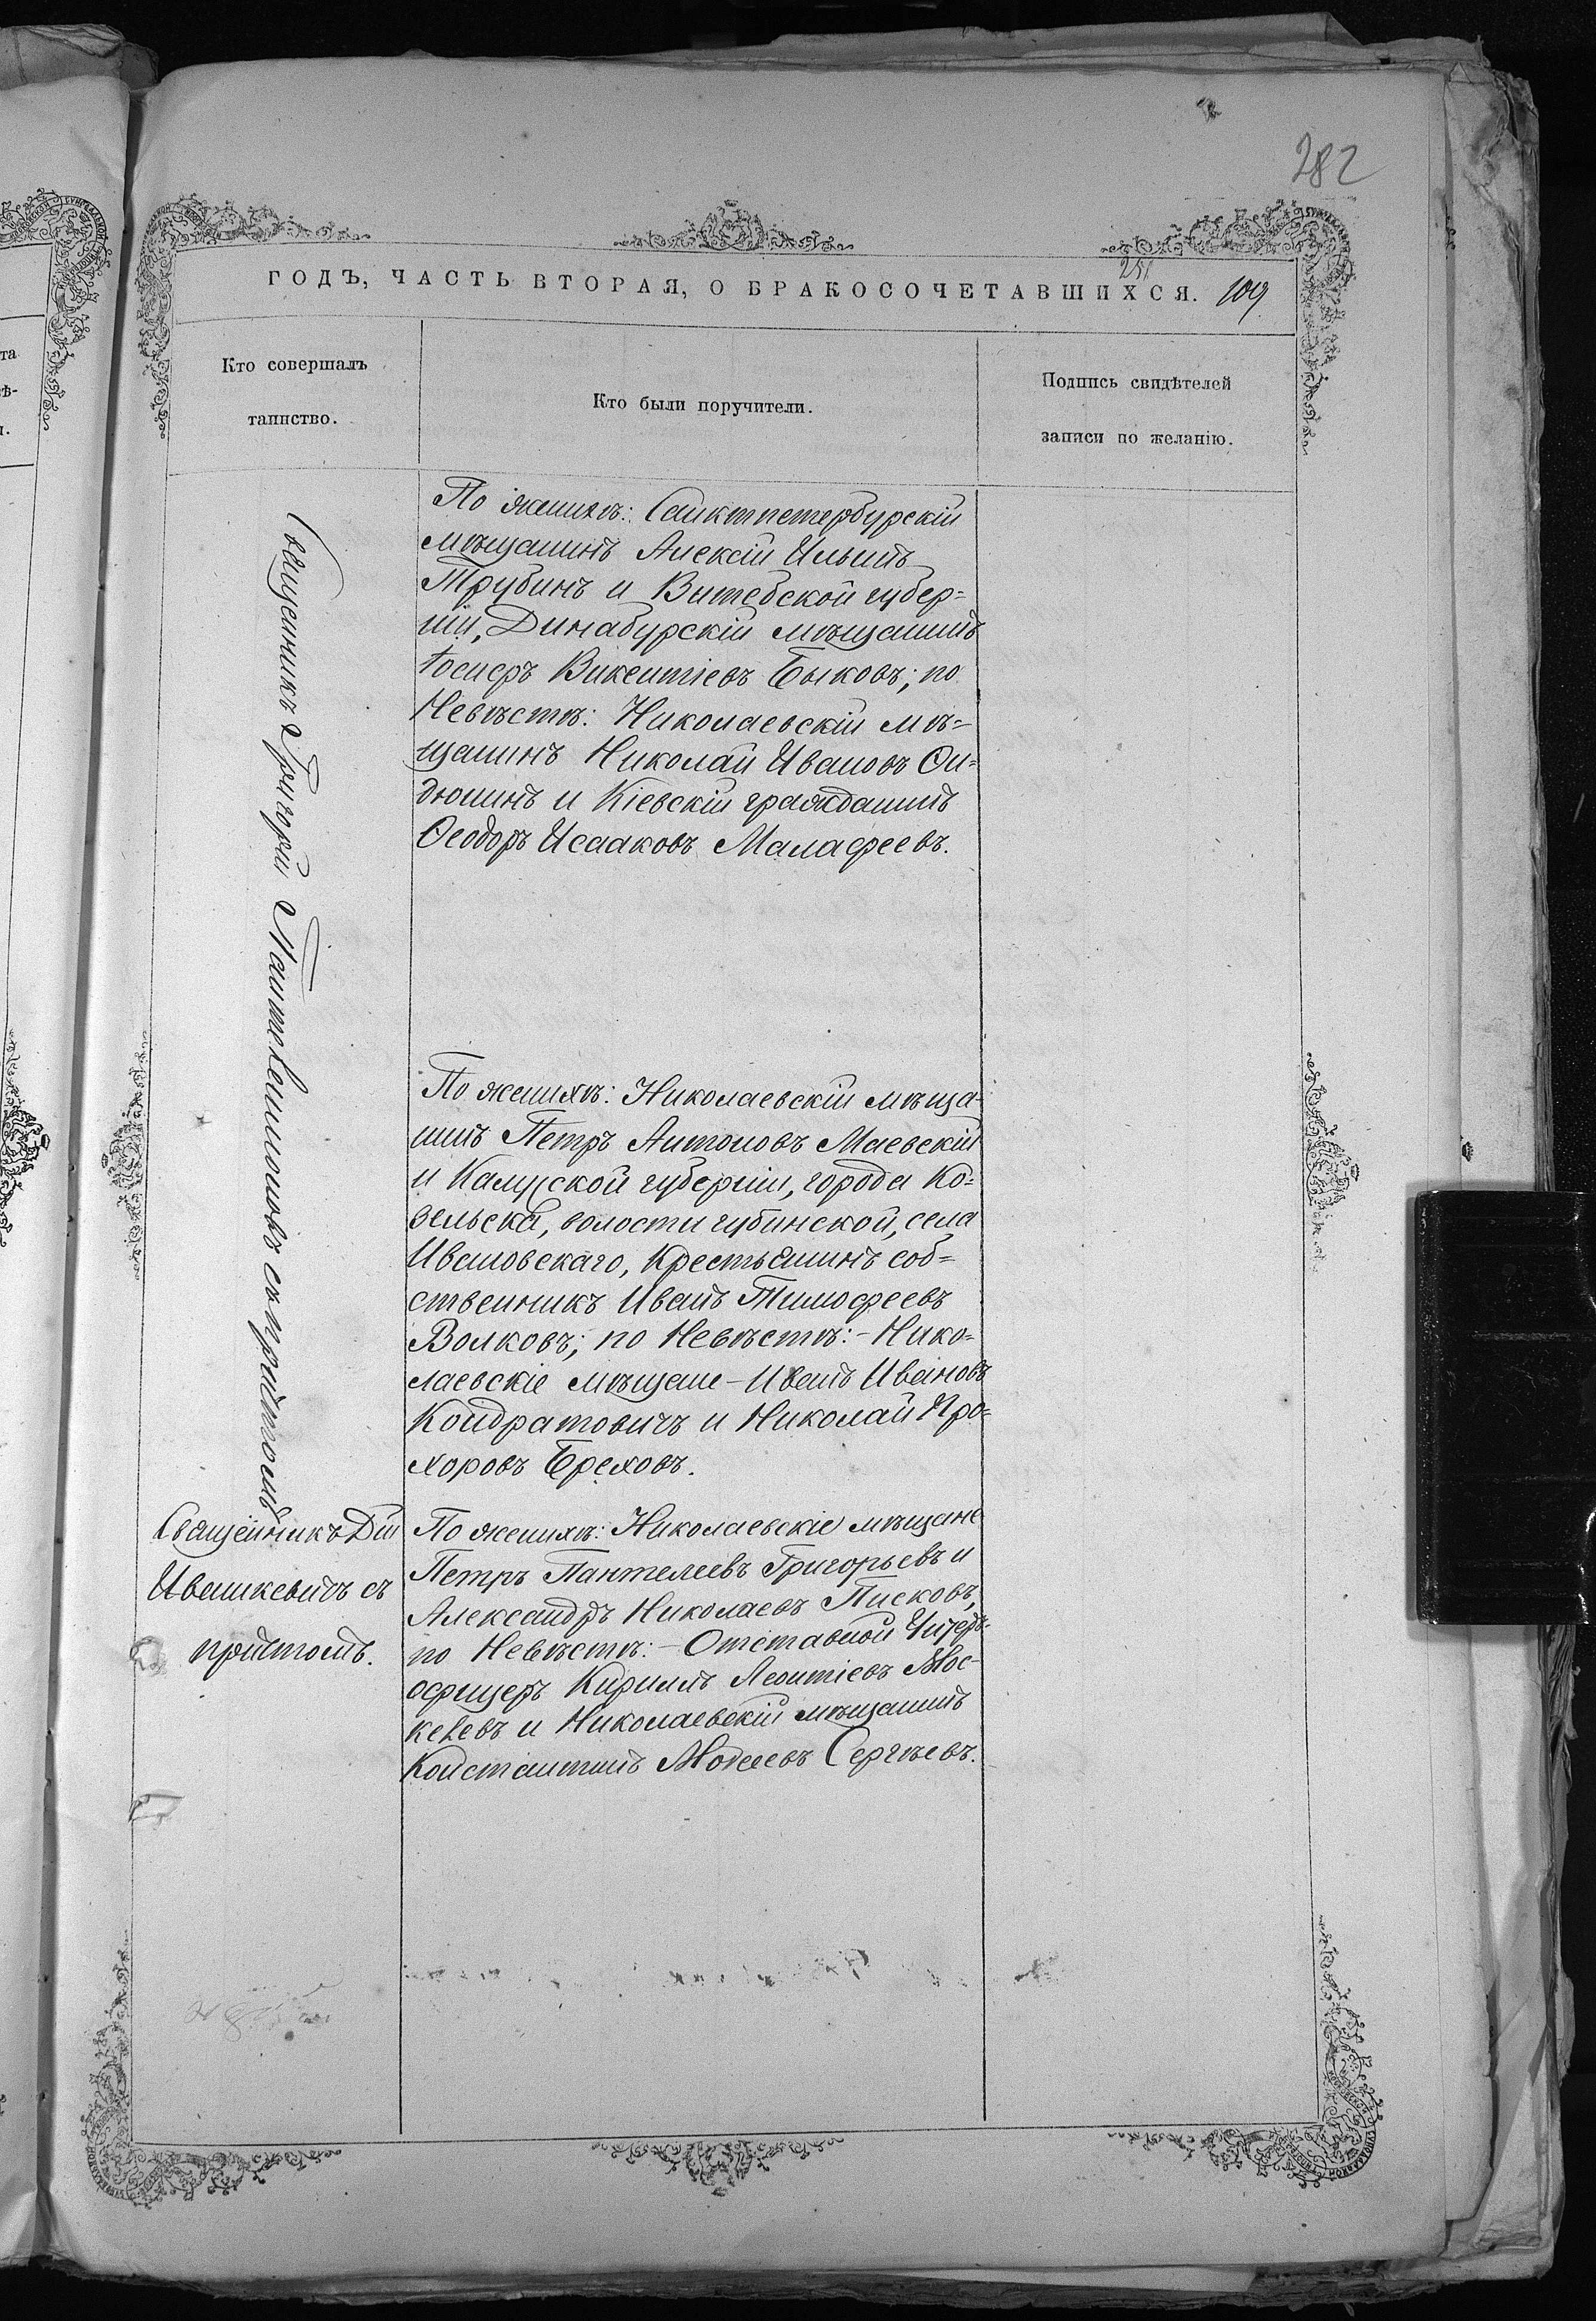 282
251
ГОДЪ, ЧАСТЬ ВТОРАЯ, О БРАКОСОЧЕТАВШИХСЯ. 109
Кто совершалъ
таинство.
Кто были поручители.
Подпись свидѣтелей
записи по желанію.
Священникъ Григорій Пантелеимоновъ съ причтомъ
По женихѣ: Санктпетербурскій
мѣщанинъ Алексій Ильинъ
Трубинъ и Витебской губер=
ніи, Динабурскій мѣщанинъ
Іосифъ Викентіевъ Быковъ; по
Невѣстѣ: Николаевскій мѣ=
щанинъ Николай Ивановъ
и Кіевскій гражданинъ
Ѳеодоръ Исааковъ Малафеевъ.
По женихѣ: Николаевскій мѣща-
нинъ Петръ Антоновъ Маевскій
и Калужской губерніи, города Ко=
зельска, волости губинской, села
Ивановскаго, Крестьянинъ соб=
ственникъ Иванъ Тимофеевъ
Волковъ; по Невѣстѣ:- Нико=
лаевскіе мѣщане - Иванъ Ивановъ
Кондратовичъ и Николай Про=
хоровъ Ереховъ.
Священникъ
Ивашкевичъ съ
причтомъ.
По женихѣ: Николаевскіе мѣщане
Петръ Пантелеевъ Григорьевъ и
Александръ Николаевъ Писковъ,
по Невѣстѣ:- Отставной Унтеръ-
офицеръ Кириллъ Леонтіевъ Мос-
калевъ и Николаевскій мѣщанинъ
Константинъ Моѵсеевъ Сергѣевъ.